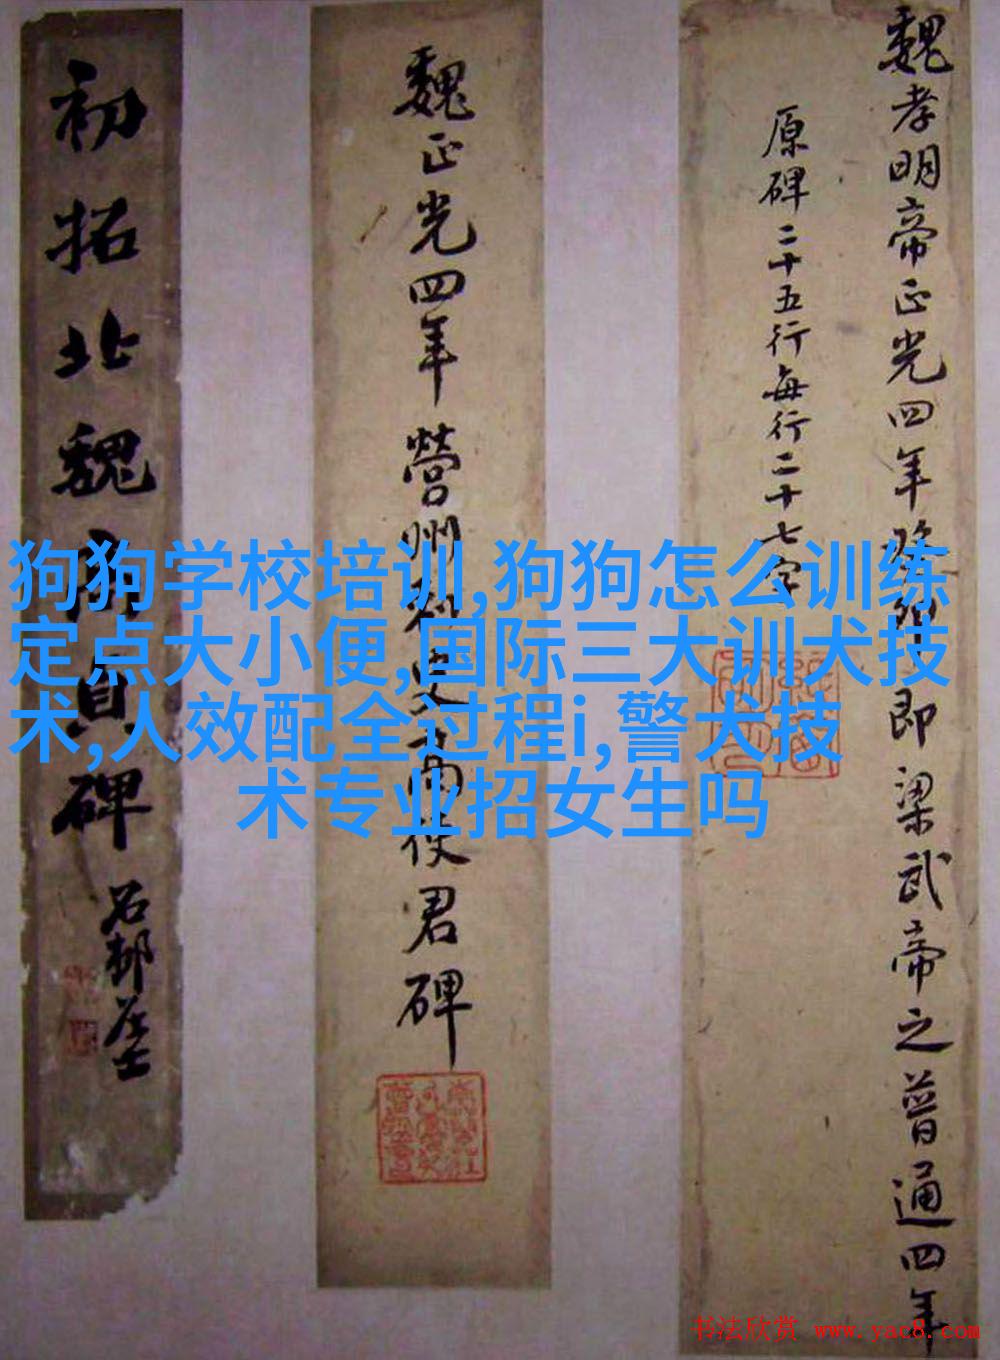 魏孝明帝正光四年癸卯即梁武帝之普通四年
原碑二十五行每行二十七字
魏正光四年营州刺史高使君碑
初拓北魏高貞碑
狗狗学校培训,狗狗怎么训练
定点大小便,国际三大训犬技
术,人效配全过程i,警犬技
术专业招女生吗
书法欣赏 www.yac8.com